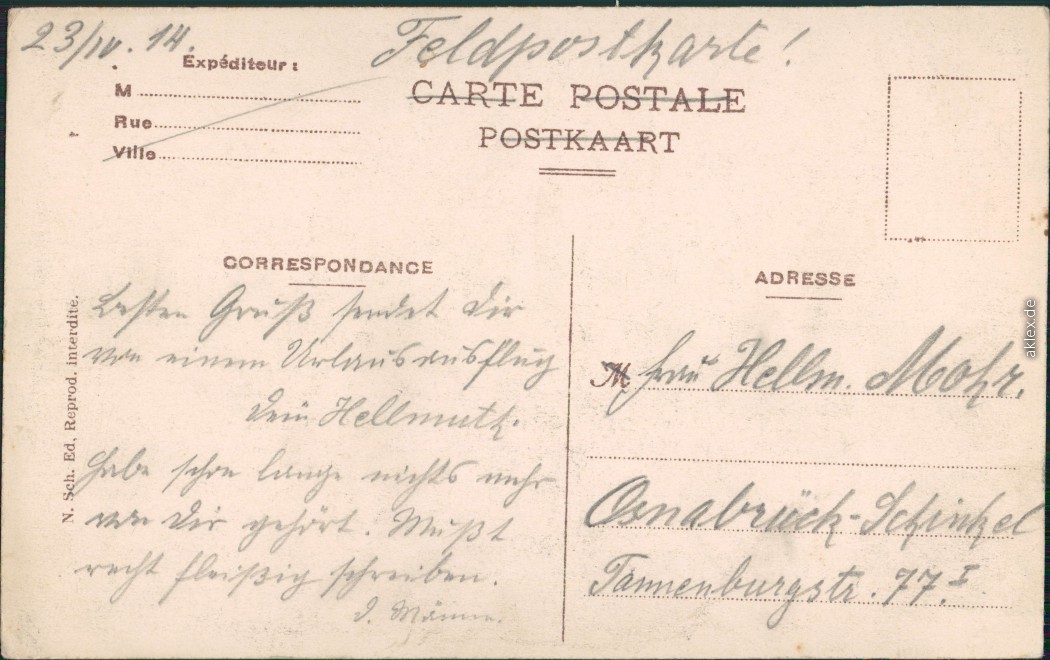 23/IV. 14.
Feldpostkarte!
Expéditeur:
M
Rue
Ville
CARTE POSTALE
POSTKAART
CORRESPONDANCE
Besten Gruß sendet Dir
von einem Urlausausflug
Dein Hellmuth.
Habe schon lange nichts mehr
von Dir gehört. Mußt
recht fleißig schreiben.
D.
ADRESSE
M Frau Hellm. Mohr.
Osnabrück-Schinkel
Tannenburgstr. 77.I
N. Sch. Ed, Reprod. interdite.
aklex.de